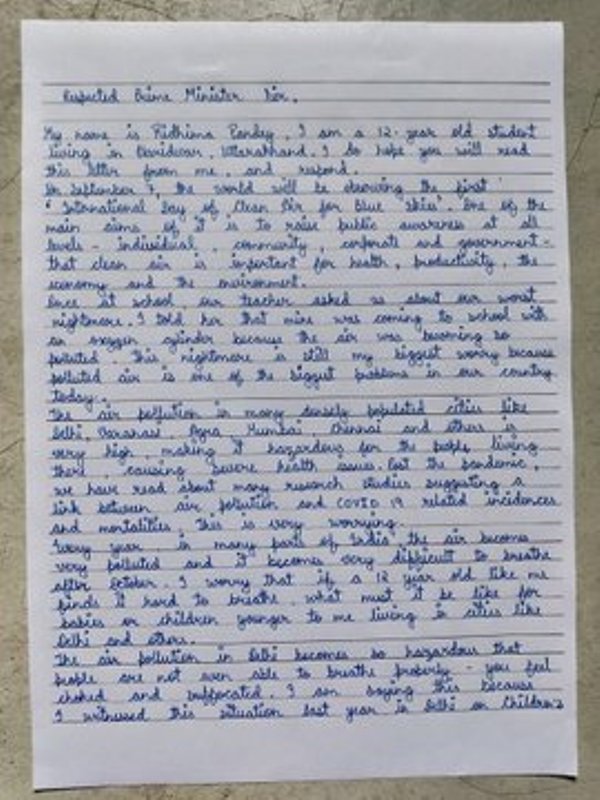 Respected Prime Minister Sir,
My name is Ridhima Pandey. I am a 12-year old student
living in Haridwar, Uttarakhand. I do hope you will read
this letter from me, and respond.
On September 7, the world will be observing the first
"International Day of Clean Air for blue skies". One of the
main aims of it is to raise public awareness at all
levels - individual, community, corporate and government -
that clean air is important for health, productivity, the
economy and the environment.
Once at school, our teacher asked us about our worst
nightmare. I told her that mine was coming to school with
an oxygen cylinder because the air was becoming so
polluted. This nightmare is still my biggest worry because
polluted air is one of the biggest problems in our country
today.
The air pollution in many densely populated cities like
Delhi, Varanasi, Agra, Mumbai, Chennai and others is
very high, making it hazardous for the people living
there, causing severe health issues. Post the pandemic,
we have read about many research studies suggesting a
link between air pollution and COVID 19 related incidences
and mortalities, this is very worrying.
Every year, in many parts of India, the air becomes
very polluted and it becomes very difficult to breathe
after October. I worry that if a 12 year old like me
finds it hard to breathe, what must it be like for
babies or children younger to me living in cities like
Delhi and others.
The air pollution in Delhi becomes so hazardous that
people are not even able to breathe properly - you feel
choked and suffocated. I am saying this because
I witnessed this situation last year in Delhi on Children's